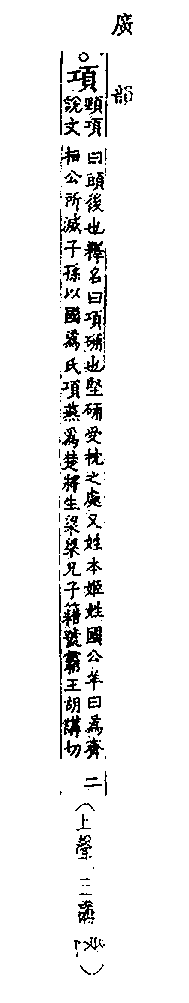 廣韻
○項
頸項說文
曰頭後也釋名曰項确也堅确受枕之處又姓本姬姓國公羊曰為齊
桓公所滅子孫以國為氏項燕為楚將生梁梁兄子籍號霸王胡講切
二
(上聲 三講